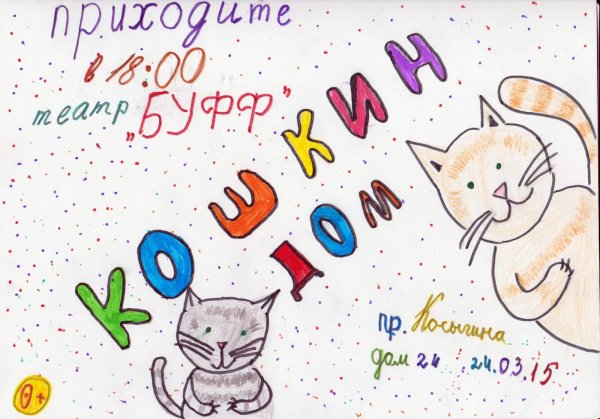 приходите
в 18:00
театр „БУФФ"
КОШКИН
ДОМ
пр. Косыгина
дом 24 24.03.15
0+